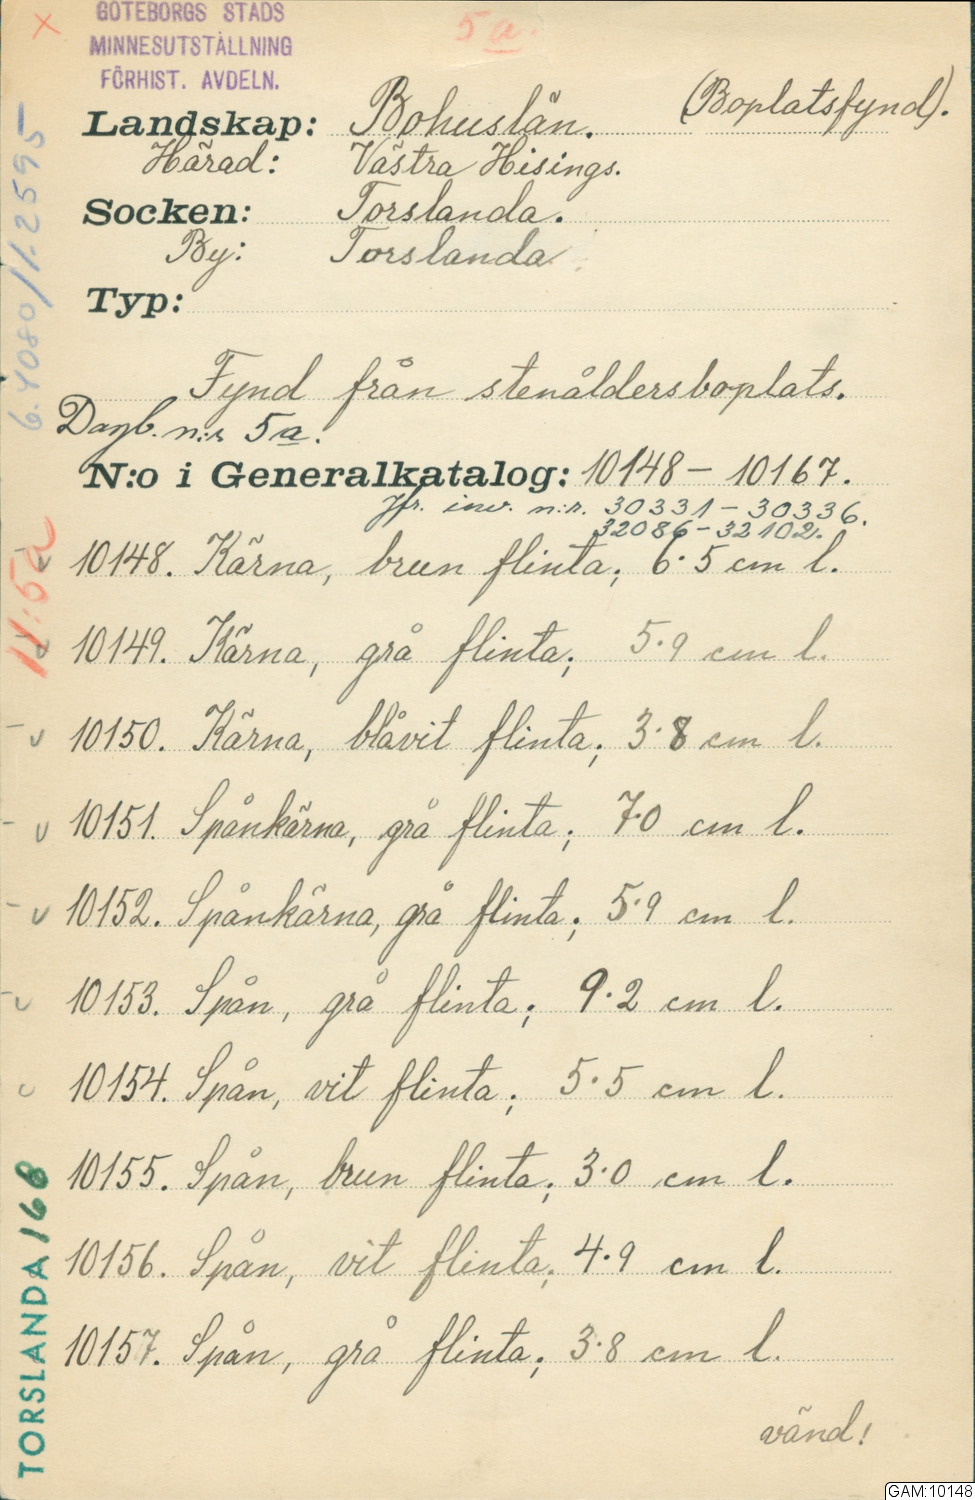 GÖTEBORGS STADS
MINNESUTSTÄLLNING
FÖRHIST. AVDELN.
5a.
(Boplatsfynd).
Landskap: Bohuslän.
Härad: Västra Hisings.
Socken: Torslanda.
By: Torslanda.
Typ:
Fynd från stenåldersboplats.
Dagb. n:r 5a.
N:o i Generalkatalog: 10148 – 10167.
Jfr. inv. n:r. 30331 – 30336.
32086 – 32102.
10148. Kärna, brun flinta; 6.5 cm l.
10149. Kärna, grå flinta; 5.9 cm l.
10150. Kärna, blåvit flinta; 3.8 cm l.
10151. Spånkärna, grå flinta; 7.0 cm l.
10152. Spånkärna, grå flinta; 5.9 cm l.
10153. Spån, grå flinta; 9.2 cm l.
10154. Spån, vit flinta; 5.5 cm l.
10155. Spån, brun flinta; 3.0 cm l.
10156. Spån, vit flinta; 4.9 cm l.
10157. Spån, grå flinta; 3.8 cm l.
vänd!
TORSLANDA 168
GAM:10148